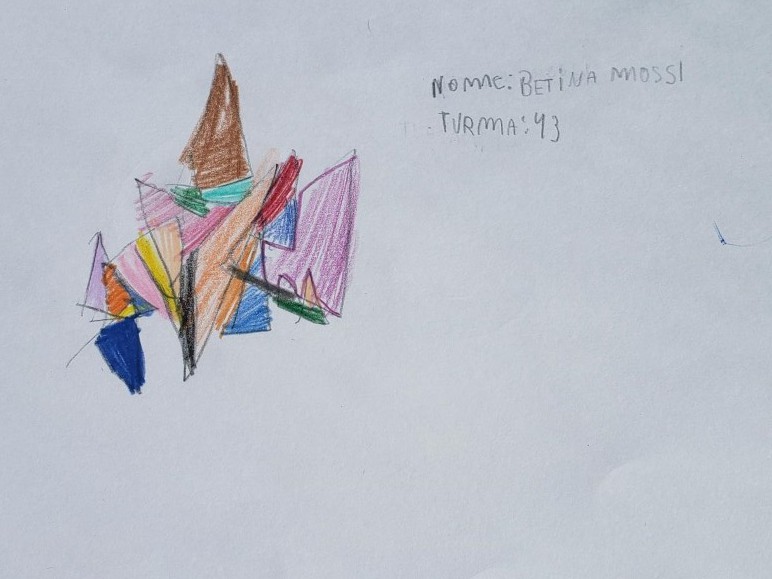 NOME: BETINA MOSSI
TURMA: 43